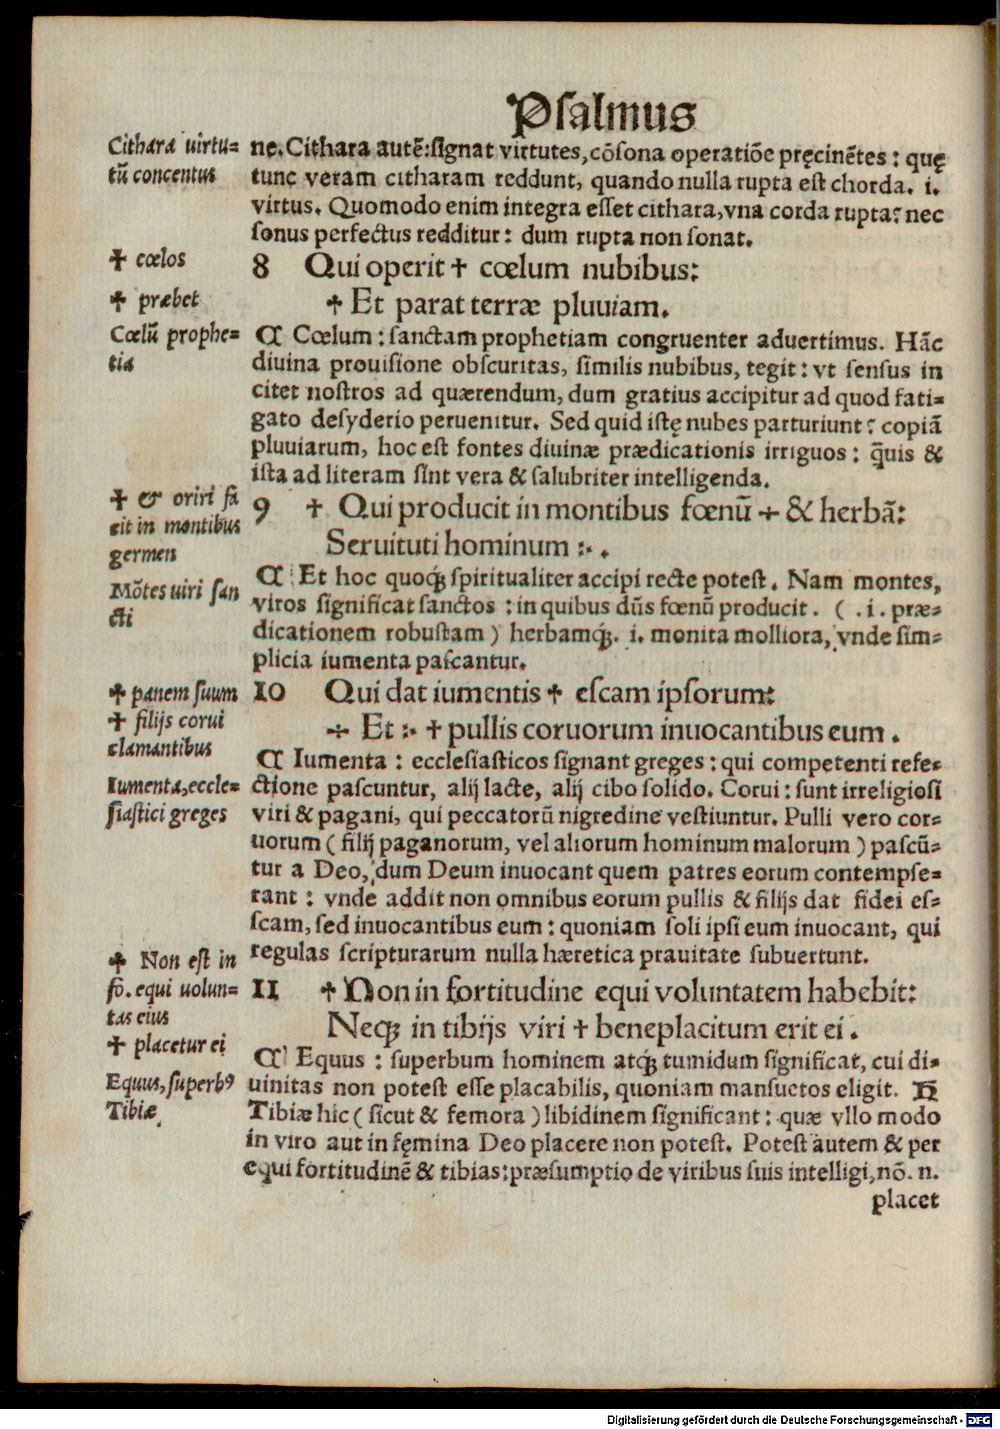 Psalmus
Cithara uirtu=
tū concentus
ne. Cithara autē: signat virtutes, cōsona operatiōe pręcinētes: quę
tunc veram citharam reddunt, quando nulla rupta est chorda. i.
virtus. Quomodo enim integra esset cithara, vna corda rupta? nec
sonus perfectus redditur: dum rupta non sonat.
✝ cœlos
8 Qui operit ✝ cœlum nubibus:
✝ præbet
✝ Et parat terræ pluuiam.
Cœlū prophe=
tia
¶ Cœlum: sanctam prophetiam congruenter aduertimus. Hāc
diuina prouisione obscuritas, similis nubibus, tegit: vt sensus in
citet nostros ad quærendum, dum gratius accipitur ad quod fati=
gato desyderio peruenitur. Sed quid istę nubes parturiunt? copiā
pluuiarum, hoc est fontes diuinæ prædicationis irriguos: q̄uis &
ista ad literam sint vera & salubriter intelligenda.
✝ & oriri fa
cit in montibus
germen
9 ✝ Qui producit in montibus fœnū ÷ & herbā:
Seruituti hominum :· .
Mōtes uiri san
cti
¶ Et hoc quoqꝫ spiritualiter accipi recte potest. Nam montes,
viros significat sanctos: in quibus dūs fœnū producit. ( .i. præ=
dicationem robustam ) herbamqꝫ. i. monita molliora, vnde sim=
plicia iumenta pascantur.
✝ panem suum
10 Qui dat iumentis ✝ escam ipsorum:
✝ filijs corui
clamantibus
÷ Et :· ✝ pullis coruorum inuocantibus eum .
Iumenta, eccle=
siastici greges
¶ Iumenta: ecclesiasticos signant greges: qui competenti refe=
ctione pascuntur, alij lacte, alij cibo solido. Corui: sunt irreligiosi
viri & pagani, qui peccatorū nigredine vestiuntur. Pulli vero cor=
uorum ( filij paganorum, vel aliorum hominum malorum ) pascū=
tur a Deo, dum Deum inuocant quem patres eorum contempse=
rant: vnde addit non omnibus eorum pullis & filijs dat fidei es=
scam, sed inuocantibus eum: quoniam soli ipsi eum inuocant, qui
regulas scripturarum nulla hæretica prauitate subuertunt.
✝ Non est in
fō. equi uolun=
tas eius
11 ✝ Non in fortitudine equi voluntatem habebit:
✝ placetur ei
Neqꝫ in tibijs viri ✝ beneplacitum erit ei .
Equus, superbꝰ
Tibiæ
¶ Equus: superbum hominem atqꝫ tumidum significat, cui di=
uinitas non potest esse placabilis, quoniam mansuetos eligit.
Tibiæ hic ( sicut & femora ) libidinem significant: quæ vllo modo
in viro aut in fęmina Deo placere non potest. Potest autem & per
equi fortitudinē & tibias: præsumptio de viribus suis intelligi, nō. n.
placet
Digitalisierung gefördert durch die Deutsche Forschungsgemeinschaft - DFG